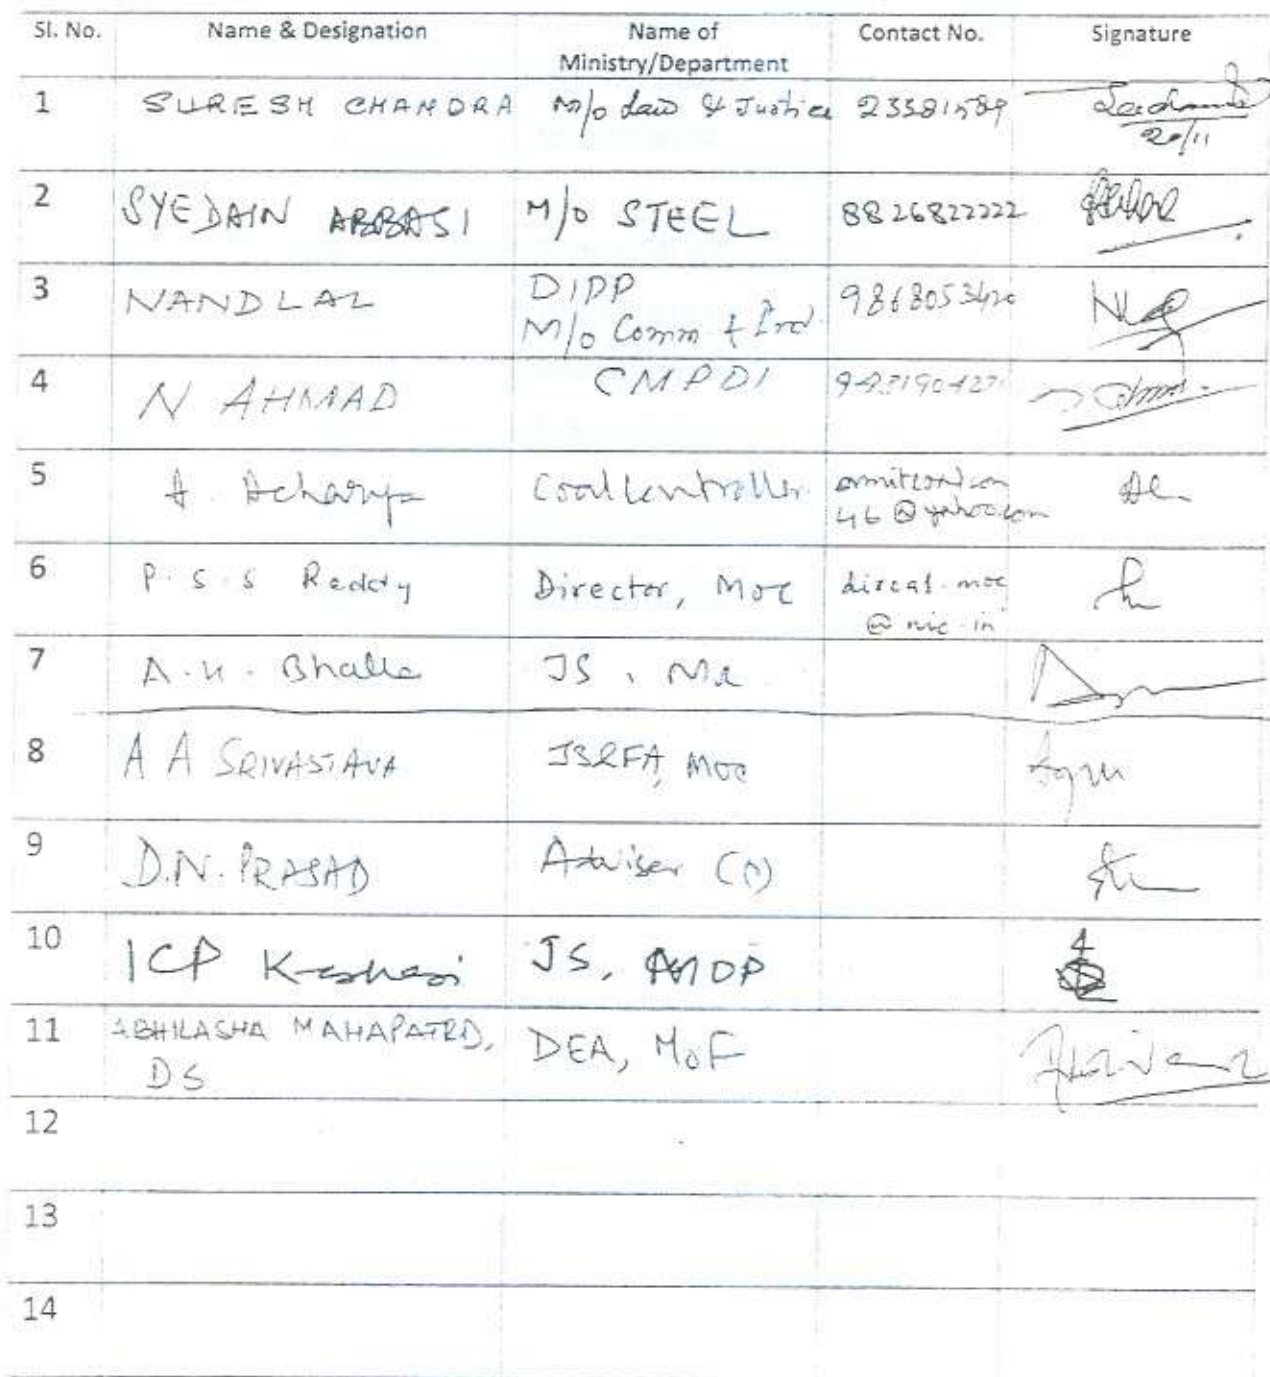 Sl. No. Name & Designation Name of Ministry/Department Contact No. Signature
1 SURESH CHANDRA M/o Law & Justice 23381589
20/11
2 SYEDAIN ABBASI M/o STEEL 8826822222
3 NANDLAL DIPP 9868053420
M/o Comm & Ind.
4 N AHMAD CMPDI
5 A. Acharya Coal Controller
46@yahoo.com
6 P.S.S Reddy Director, MoC
@nic.in
7 A.K. Bhalla JS,
8 A A SRIVASTAVA JS&FA, MOC
9 D.N. PRASAD Adviser (P)
10 ICP JS, MOP
11 ABHILASHA MAHAPATRA, DEA, MoF
DS
12
13
14